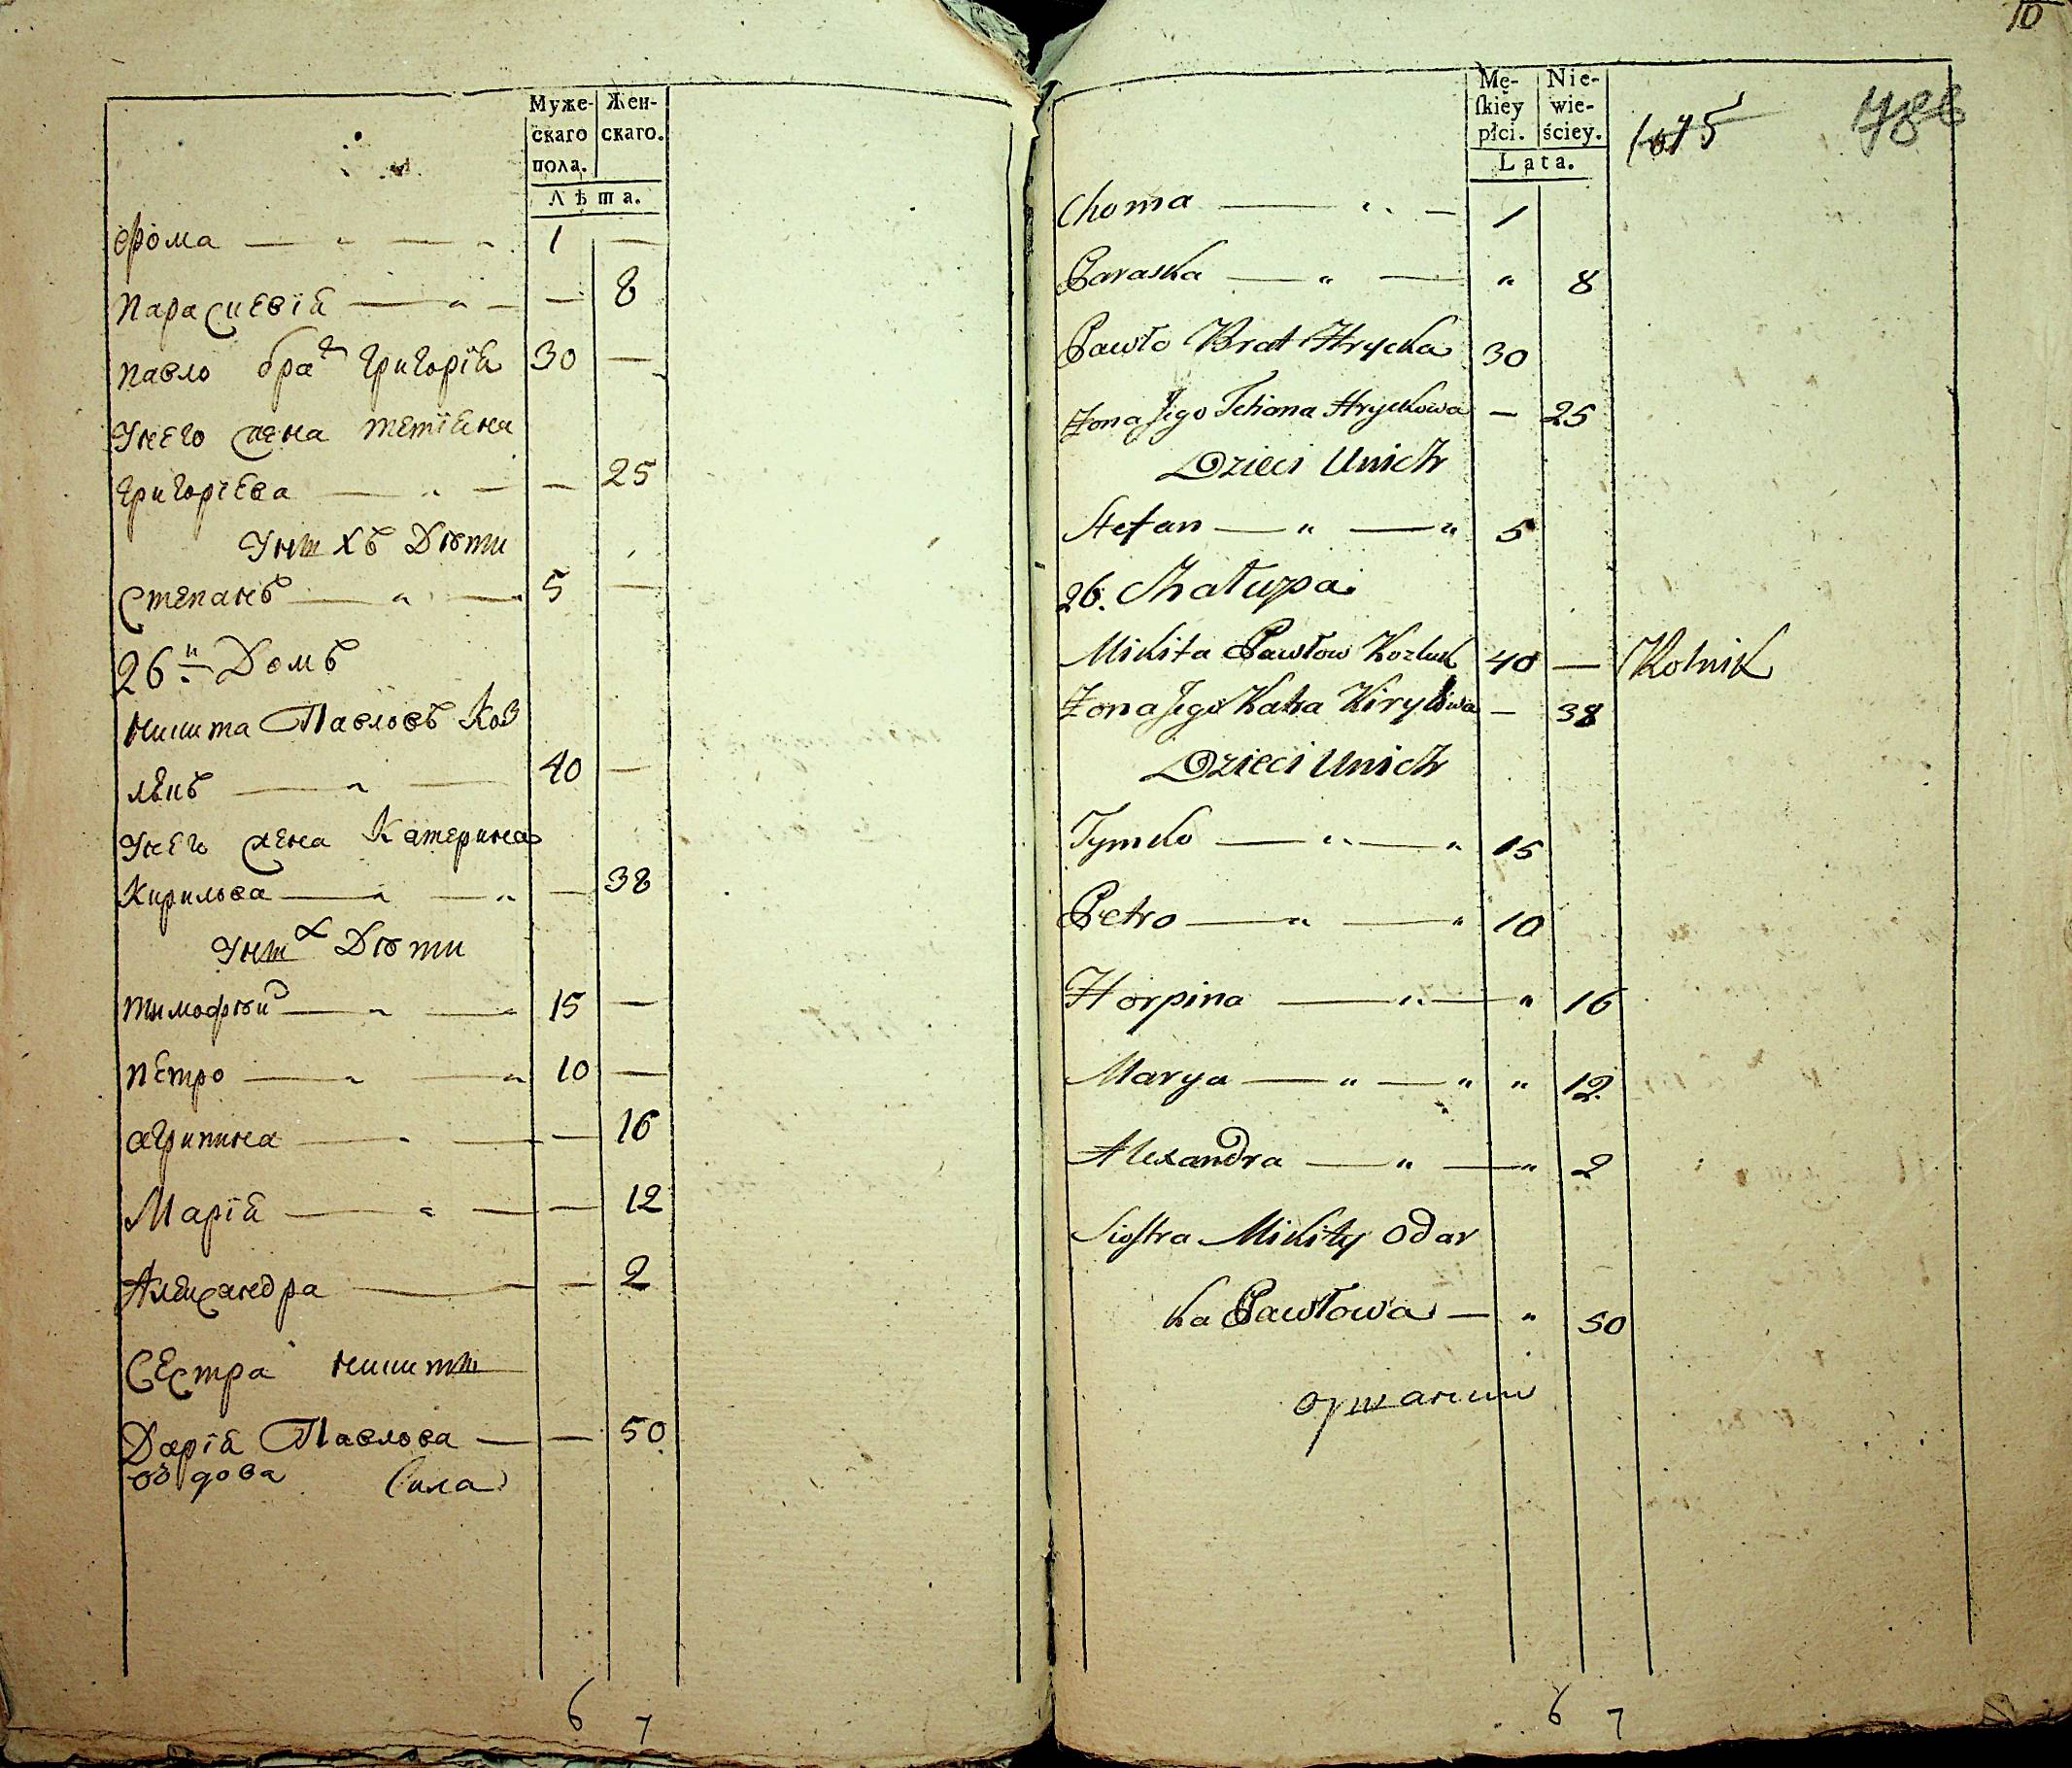 Муже-
скаго
пола.
Жен-
скаго.
Лѣта.
Ѳома — „ — „ 1 —
Параскевія — „ — — 8
Павло братъ Григорія 30 —
Унего жена Тетіяна
Григорїева — „ — — 25
Унихъ Дѣти
Степанъ — „ — „ 5 —
26й Домъ
Никита Павловъ Коз
лѣкъ — „ — 40 —
Унего жена Катерина
Кирилова — „ — „ — 38
Унихъ Дѣти
Тимофѣй — „ — „ 15 —
Петро — „ — „ 10 —
Агрипина — „ — — 16
Марія — „ — — 12
Александра — — 2
Сестра Никиты
Дарія Павлова — — 50
вдова
6 7
10
Mę-
ſkiéy
płci.
Nie-
wie-
ściey.
Lata.
1075
488
Choma — „ — 1
Paraska — „ — „ 8
Pawło Brat Hrycka 30
Żona Jego Tehiana Hryckowa — 25
Dzieci Unich
Stefan — „ — „ 5
26. Chałupa
Mikita Pawłow Kozluk 40 — Rolnik
Żona Jego Katra Kiryłowa — 38
Dzieci Unich
Tymko — „ — „ 15
Petro — „ — „ 10
Horpina — „ — „ 16
Marya — „ — „ „ 12
Alexandra — „ — „ 2
Siostra Mikity Odar
ka Pawłowa — „ 50
6 7